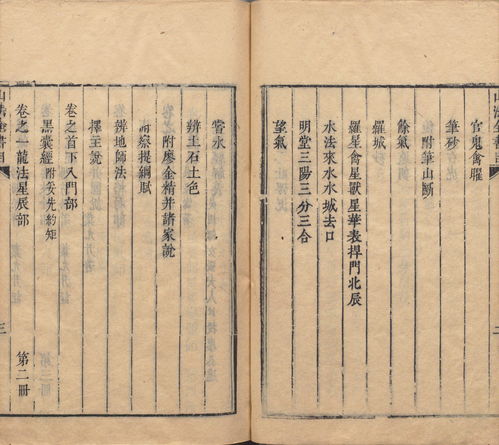 官鬼禽曜
筆砂
附筆山斷
餘氣
羅城
羅星禽星獸星華表捍門北辰
水法來水水城去口
明堂三陽三分三合
望氣
嘗水
辨土石土色
附廖金精并諸家說
附察提鋼賦
辨地師法
擇主說
卷之首下入門部
黑囊經附吳先約知
卷之一龍法星辰部
第二冊
三
二